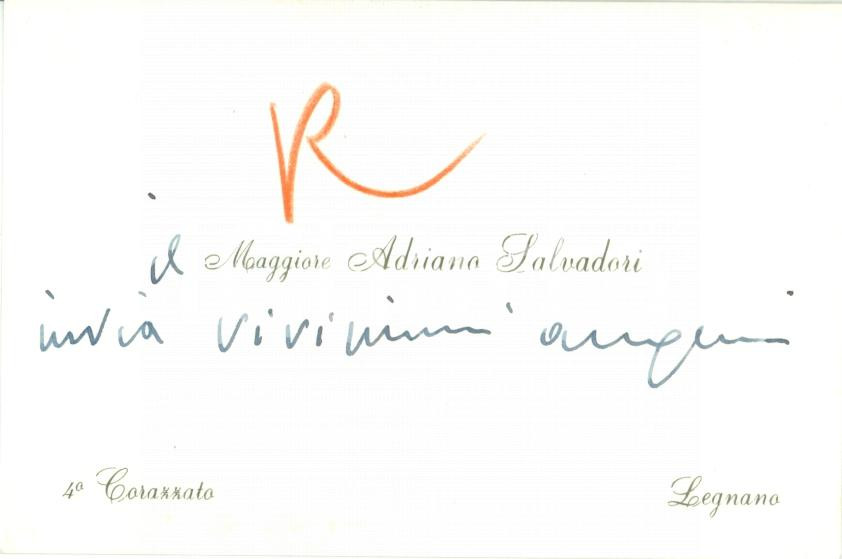 R
il Maggiore Adriano Salvadori
invia vivissimi auguri
4º Corazzato
Legnano